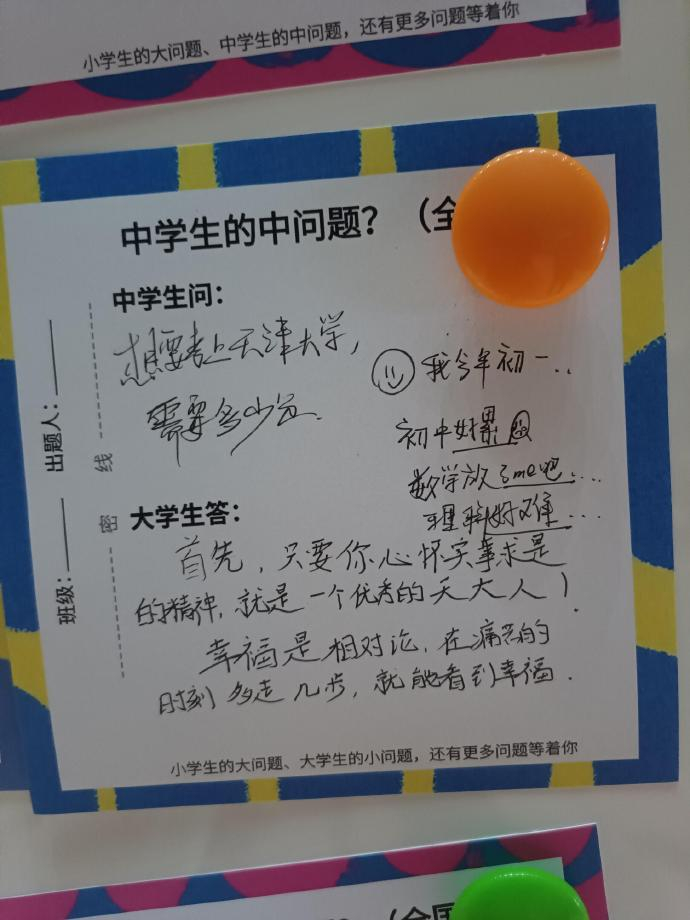 小学生的大问题、中学生的中问题，还有更多问题等着你
中学生的中问题？（全
中学生问：
想要考上天津大学，
需要多少分
我今年初一..
初中好累
数学放了me吧...
好难...
出题人：
班级：
密 线
大学生答：
首先，只要你心怀实事求是
的精神，就是一个优秀的天大人！
幸福是相对论，在痛苦的
时刻多走几步，就能看到幸福.
小学生的大问题、大学生的小问题，还有更多问题等着你
（全国